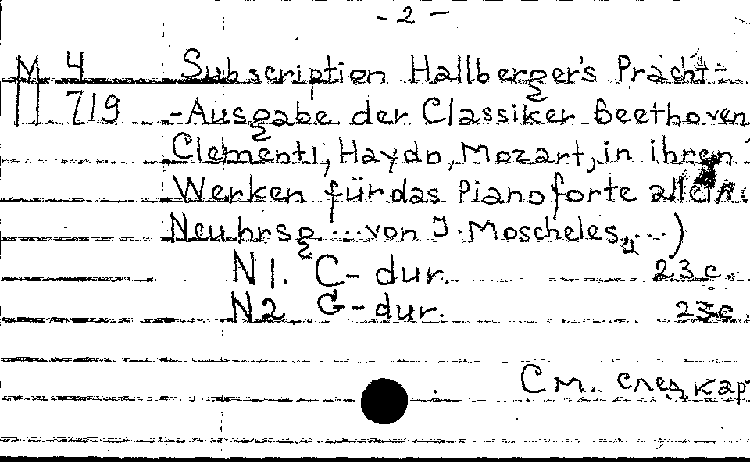 - 2 -
M 4 Subscription Hallberger's Pracht-
719 -Ausgabe der Classiker Beethoven
Clementi, Haydn, Mozart, in ihren
Werken für das Pianoforte allein.
Neu hrsg ... von J. Moscheles, ...)
N 1. C-dur. 23 c.
N 2 G-dur. 23 c.
См. след кар